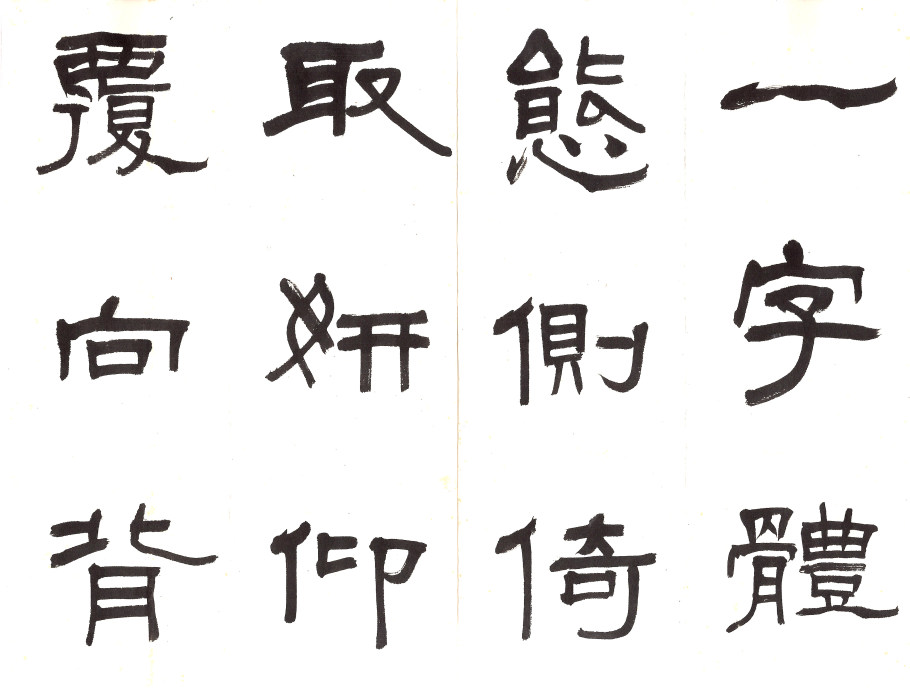 一字體
態側倚
取妍仰
覆向背